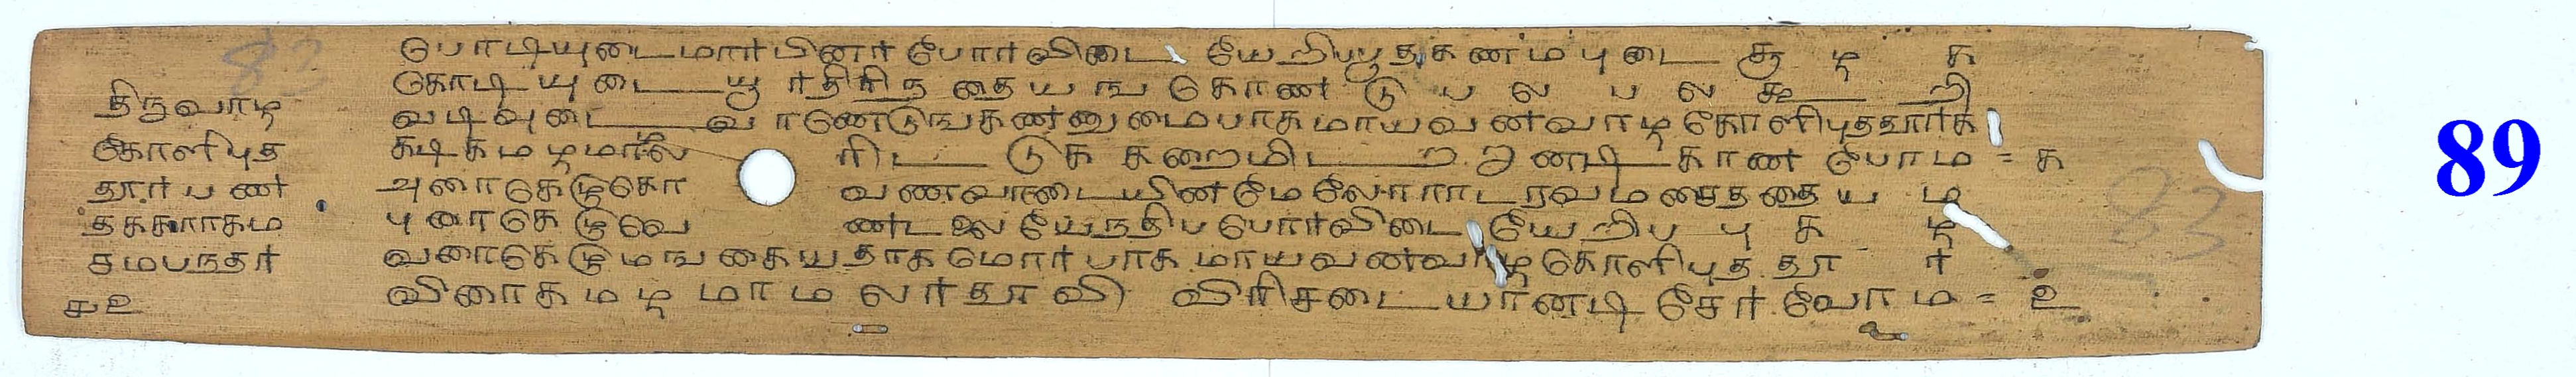 திருவாழ
கொளிபுத
தூர பண
தககராகம
சமபநதர
சுஉ
பொடியுடைமாரபினர போரவிடை யேறிபபூதகணமபுடை சூ ழ க
கொடி யுடை யூரதிரிநதையங கொண டு ப ல ப ல கூ றி
வடிவுடை வாணெடுஙகணணுமைபாகமாயவனவாழகொளிபுததூரக
கடிகமழமால ரிட டுக கறைமிட றறனடி காண போம = க
அரைகெழுகோ வணவாடையினமேலோராடரவமசைததைய ம
புரைகெழுவெ ணடலை யேநதிப போரவிடை யேறிப பு க ழ
வரைகெழுமஙகையதாகமோரபாக மாயவனவாழகொளிபுத தூ ர
விரைகமழ மாமலரதூவி விரிசடையானடி சேர வோ ம = உ
83
83
89